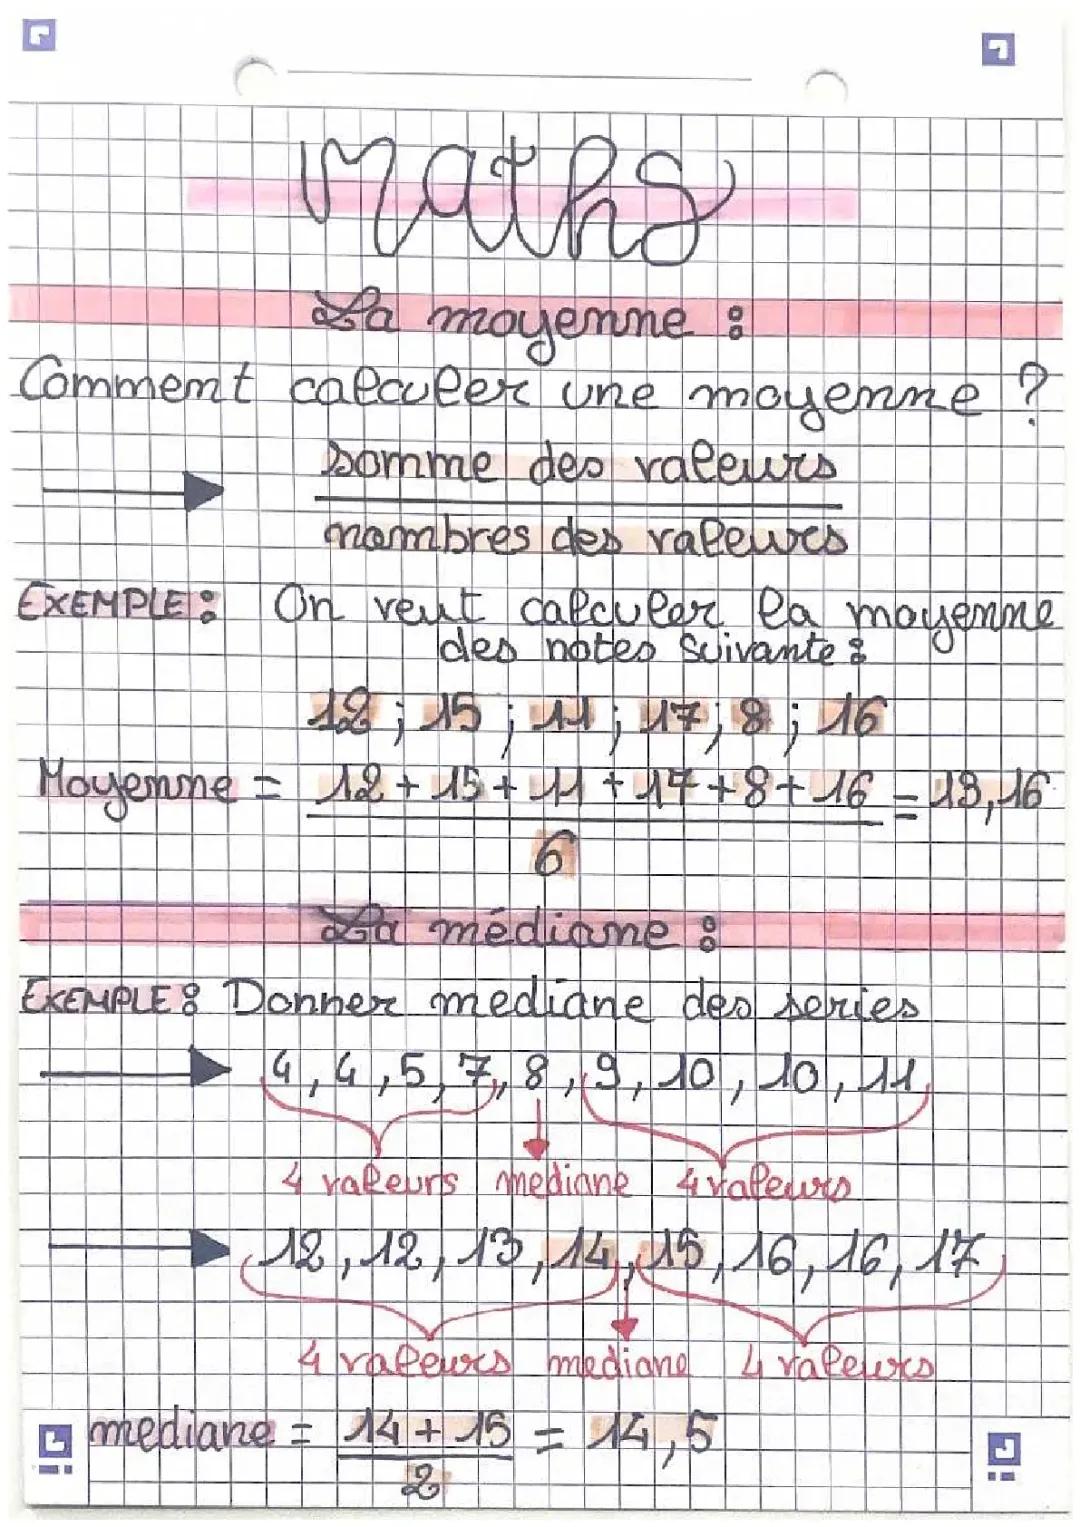 Maths
La moyenne :
Comment calculer une moyenne ?
somme des valeurs
nombres des valeurs
EXEMPLE : On veut calculer la moyenne
des notes suivante :
12 ; 15 ; 11 ; 17 ; 8 ; 16
Moyenne = 12 + 15 + 11 + 17 + 8 + 16 = 13,16
6
La médiane :
EXEMPLE : Donner mediane des series
4, 4, 5, 7, 8, 9, 10, 10, 11
4 valeurs mediane 4 valeurs
12, 12, 13, 14, 15, 16, 16, 17
4 valeurs mediane 4 valeurs
mediane = 14 + 15 = 14,5
2